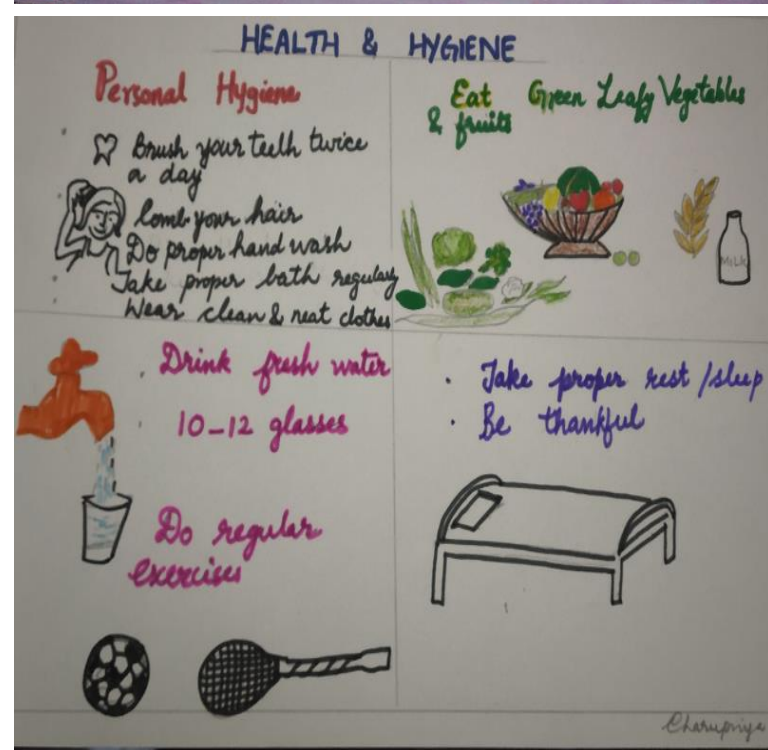 HEALTH & HYGIENE
Personal Hygiene
Brush your teeth twice
a day
Comb your hair
Do proper hand wash
Take proper bath regularly
Wear clean & neat clothes
Eat Green Leafy Vegetables
& fruits
MiLK
Drink fresh water
10-12 glasses
Do regular
exercises
Take proper rest / sleep
Be thankful
Charupriya